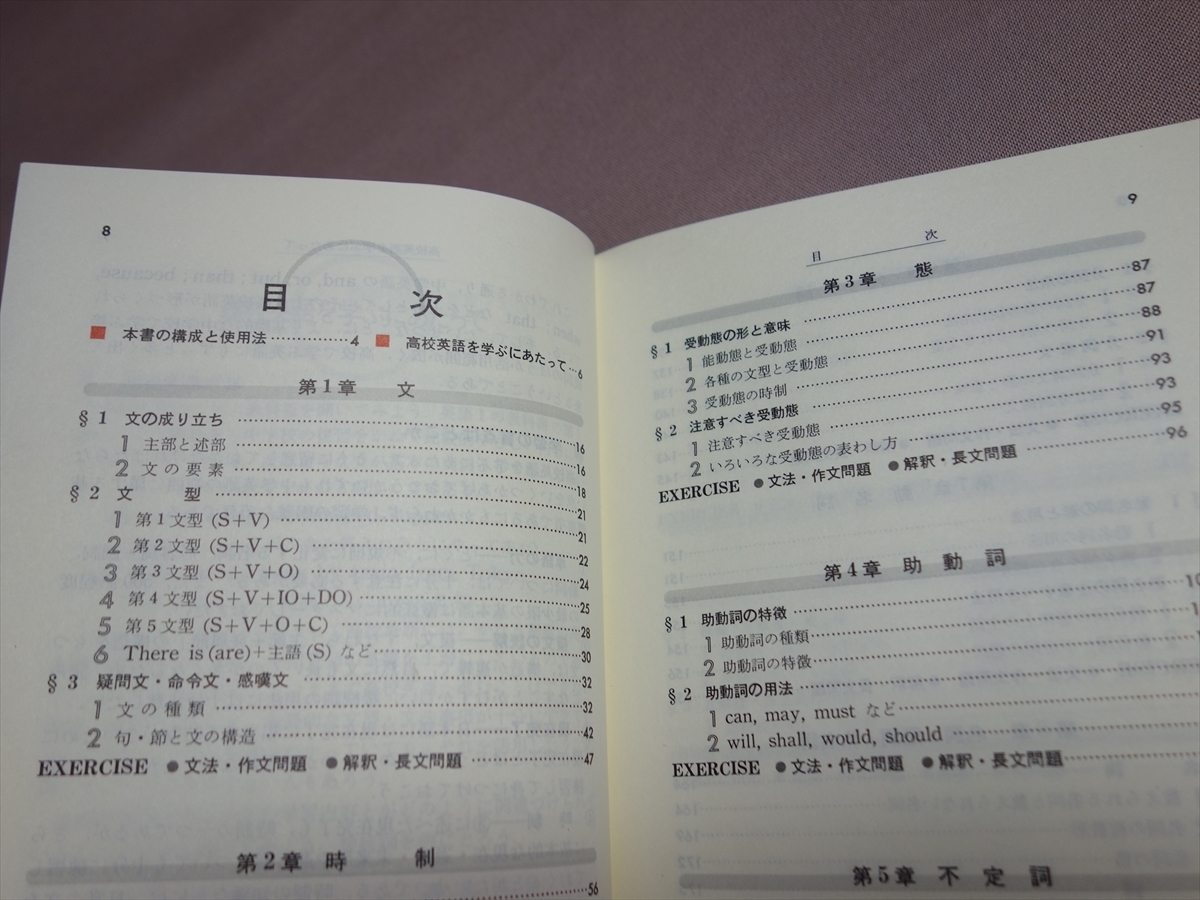 8
目 次
■ 本書の構成と使用法…………4 ■ 高校英語を学ぶにあたって…6
第1章 文
§1 文の成り立ち……16
1 主部と述部……16
2 文の要素……18
§2 文 型……21
1 第1文型 (S+V)……21
2 第2文型 (S+V+C)……22
3 第3文型 (S+V+O)……24
4 第4文型 (S+V+IO+DO)……25
5 第5文型 (S+V+O+C)……28
6 There is (are)+主語 (S) など……30
§3 疑問文・命令文・感嘆文……32
1 文の種類……32
2 句・節と文の構造……42
EXERCISE ●文法・作文問題 ●解釈・長文問題……47
第2章 時 制
……56
9
目 次
第3章 態
§1 受動態の形と意味……87
1 能動態と受動態……87
2 各種の文型と受動態……88
3 受動態の時制……91
§2 注意すべき受動態……93
1 注意すべき受動態……93
2 いろいろな受動態の表わし方……95
EXERCISE ●文法・作文問題 ●解釈・長文問題……96
第4章 助動詞
§1 助動詞の特徴……
1 助動詞の種類……
2 助動詞の特徴……
§2 助動詞の用法……
1 can, may, must など……
2 will, shall, would, should……
EXERCISE ●文法・作文問題 ●解釈・長文問題……
第5章 不定詞